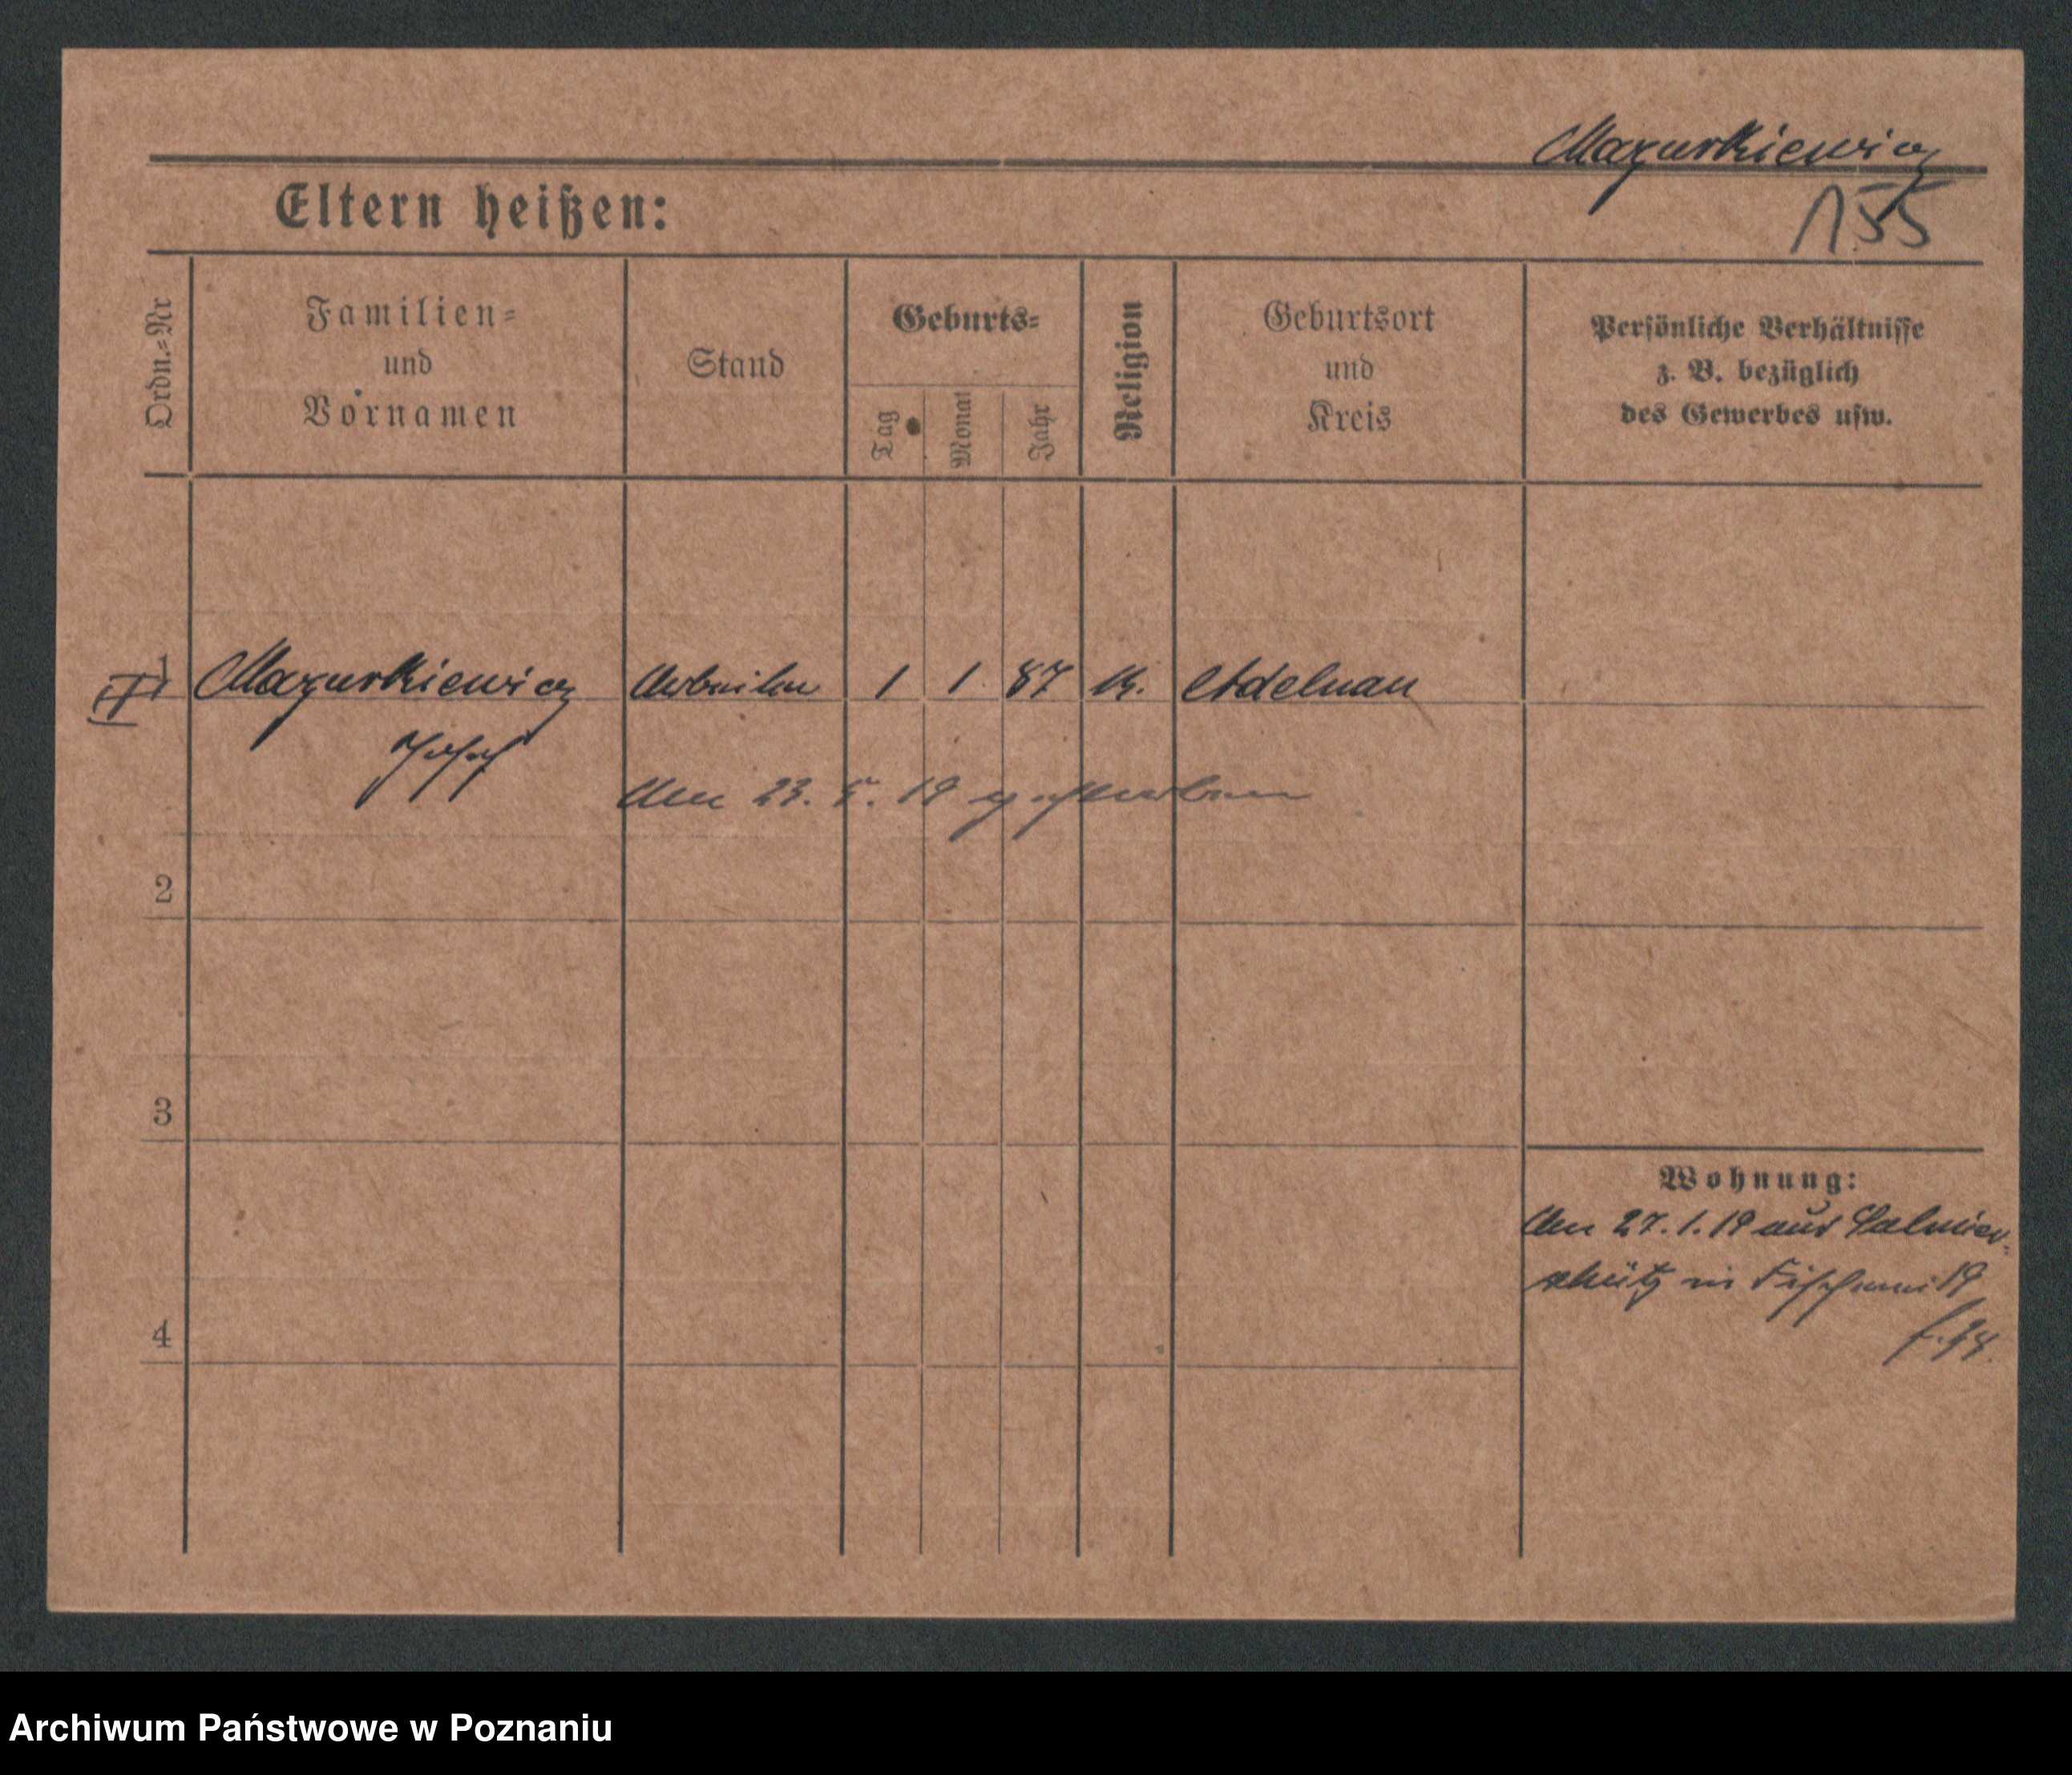 Mazurkiewicz
155
Eltern heißen:
Ordn.=Nr
Familien=
und
Vornamen
Stand
Geburts=
Tag
Monat
Jahr
Religion
Geburtsort
und
Kreis
Persönliche Verhältnisse
z. B. bezüglich
des Gewerbes usw.
1 Mazurkiewicz Arbeiter 1 1. 87 K. Adelnau
Josef
Am 23. 5. 19 gestorben
2
3
4
Wohnung:
Am 27.1.19 aus Salmier-
schütz in Fischerei 19
Archiwum Państwowe w Poznaniu